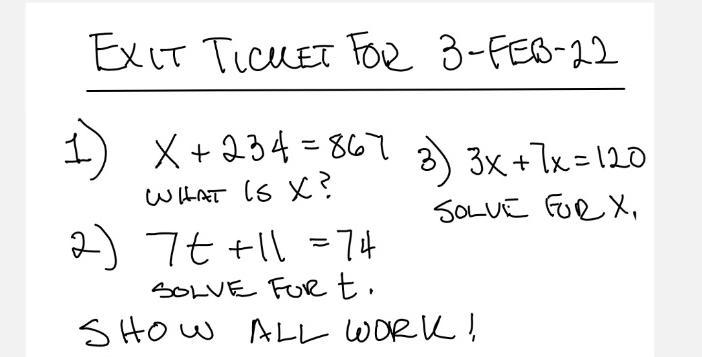 EXIT TICKET FOR 3-FEB-22
1) X + 234 = 867
WHAT IS X?
2) 7t + 11 = 74
SOLVE FOR t.
3) 3x + 7x = 120
SOLVE FOR X.
SHOW ALL WORK!